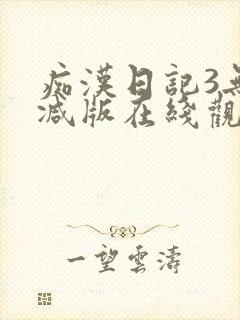 痴漢日記3無
減版在綫觀
一望雲濤